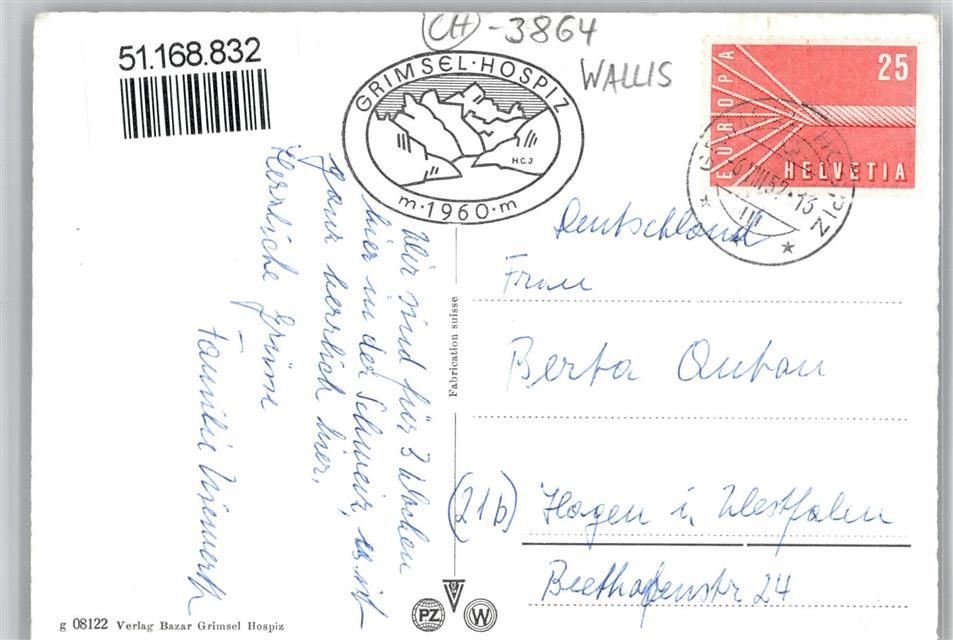 CH-3864
WALLIS
51.168.832
GRIMSEL·HOSPIZ
H.C.J
m·1960·m
25
EUROPA
HELVETIA
HOSPIZ
-6.VIII.57-13
Wir sind für 3 Wochen
hier in der Schweiz, es ist
ganz herrlich hier.
Herzliche Grüsse
Familie
Fabrication suisse
Deutschland
Frau
Berta
(21b) Hagen i. Westfalen
Beethofenstr 24
PZ
W
g 08122 Verlag Bazar Grimsel Hospiz